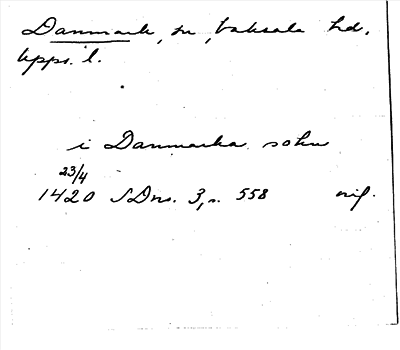 Danmark, sn, Vaksala hd,
Upps. l.
i Danmarka sokn
23/4
1420 SDns. 3, s. 558 nif.